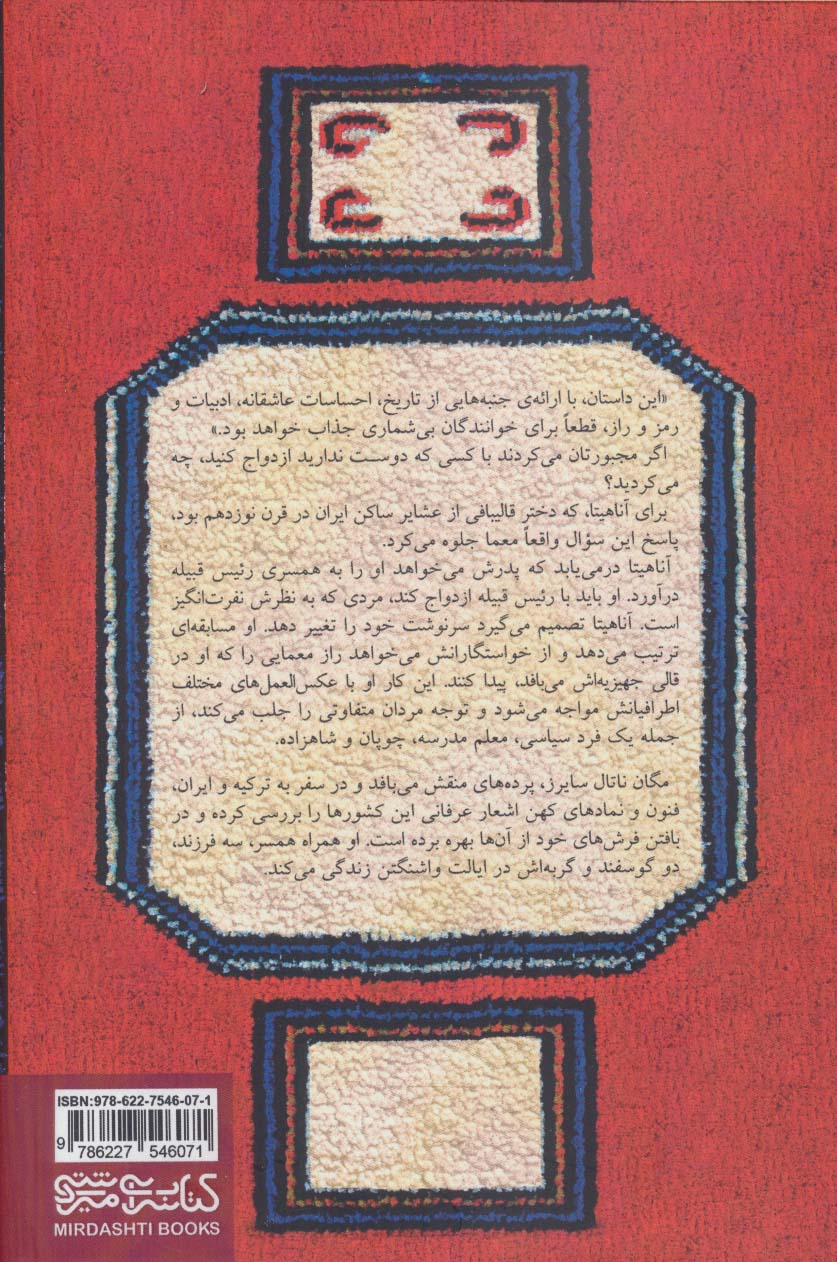 «این داستان، با ارائه‌ی جنبه‌هایی از تاریخ، احساسات عاشقانه، ادبیات و
رمز و راز، قطعاً برای خوانندگان بی‌شماری جذاب خواهد بود.»
اگر مجبورتان می‌کردند با کسی که دوست ندارید ازدواج کنید، چه
می‌کردید؟
برای آناهیتا، که دختر قالیبافی از عشایر ساکن ایران در قرن نوزدهم بود،
پاسخ این سؤال واقعاً معما جلوه می‌کرد.
آناهیتا درمی‌یابد که پدرش می‌خواهد او را به همسری رئیس قبیله
درآورد. او باید با رئیس قبیله ازدواج کند، مردی که به نظرش نفرت‌انگیز
است. آناهیتا تصمیم می‌گیرد سرنوشت خود را تغییر دهد. او مسابقه‌ای
ترتیب می‌دهد و از خواستگارانش می‌خواهد راز معمایی را که او در
قالی جهیزیه‌اش می‌بافد، پیدا کنند. این کار او با عکس‌العمل‌های مختلف
اطرافیانش مواجه می‌شود و توجه مردان متفاوتی را جلب می‌کند، از
جمله یک فرد سیاسی، معلم مدرسه، چوپان و شاهزاده.
مگان ناتال سایرز، پرده‌های منقش می‌بافد و در سفر به ترکیه و ایران،
فنون و نمادهای کهن اشعار عرفانی این کشورها را بررسی کرده و در
بافتن فرش‌های خود از آن‌ها بهره برده است. او همراه همسر، سه فرزند،
دو گوسفند و گربه‌اش در ایالت واشنگتن زندگی می‌کند.
ISBN:978-622-7546-07-1
9 786227 546071
کتابسرای میردشتی
MIRDASHTI BOOKS